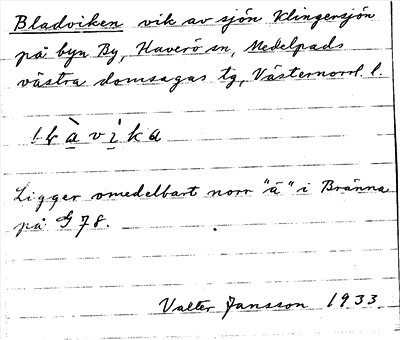 Bladviken vik av sjön Klingersjön
på byn By, Haverö sn, Medelpads
västra domsagas tg, Västernorrl. l.
blàvìka
Ligger omedelbart norr "ä" i Bränna
på G 78.
Valter Jansson 1933